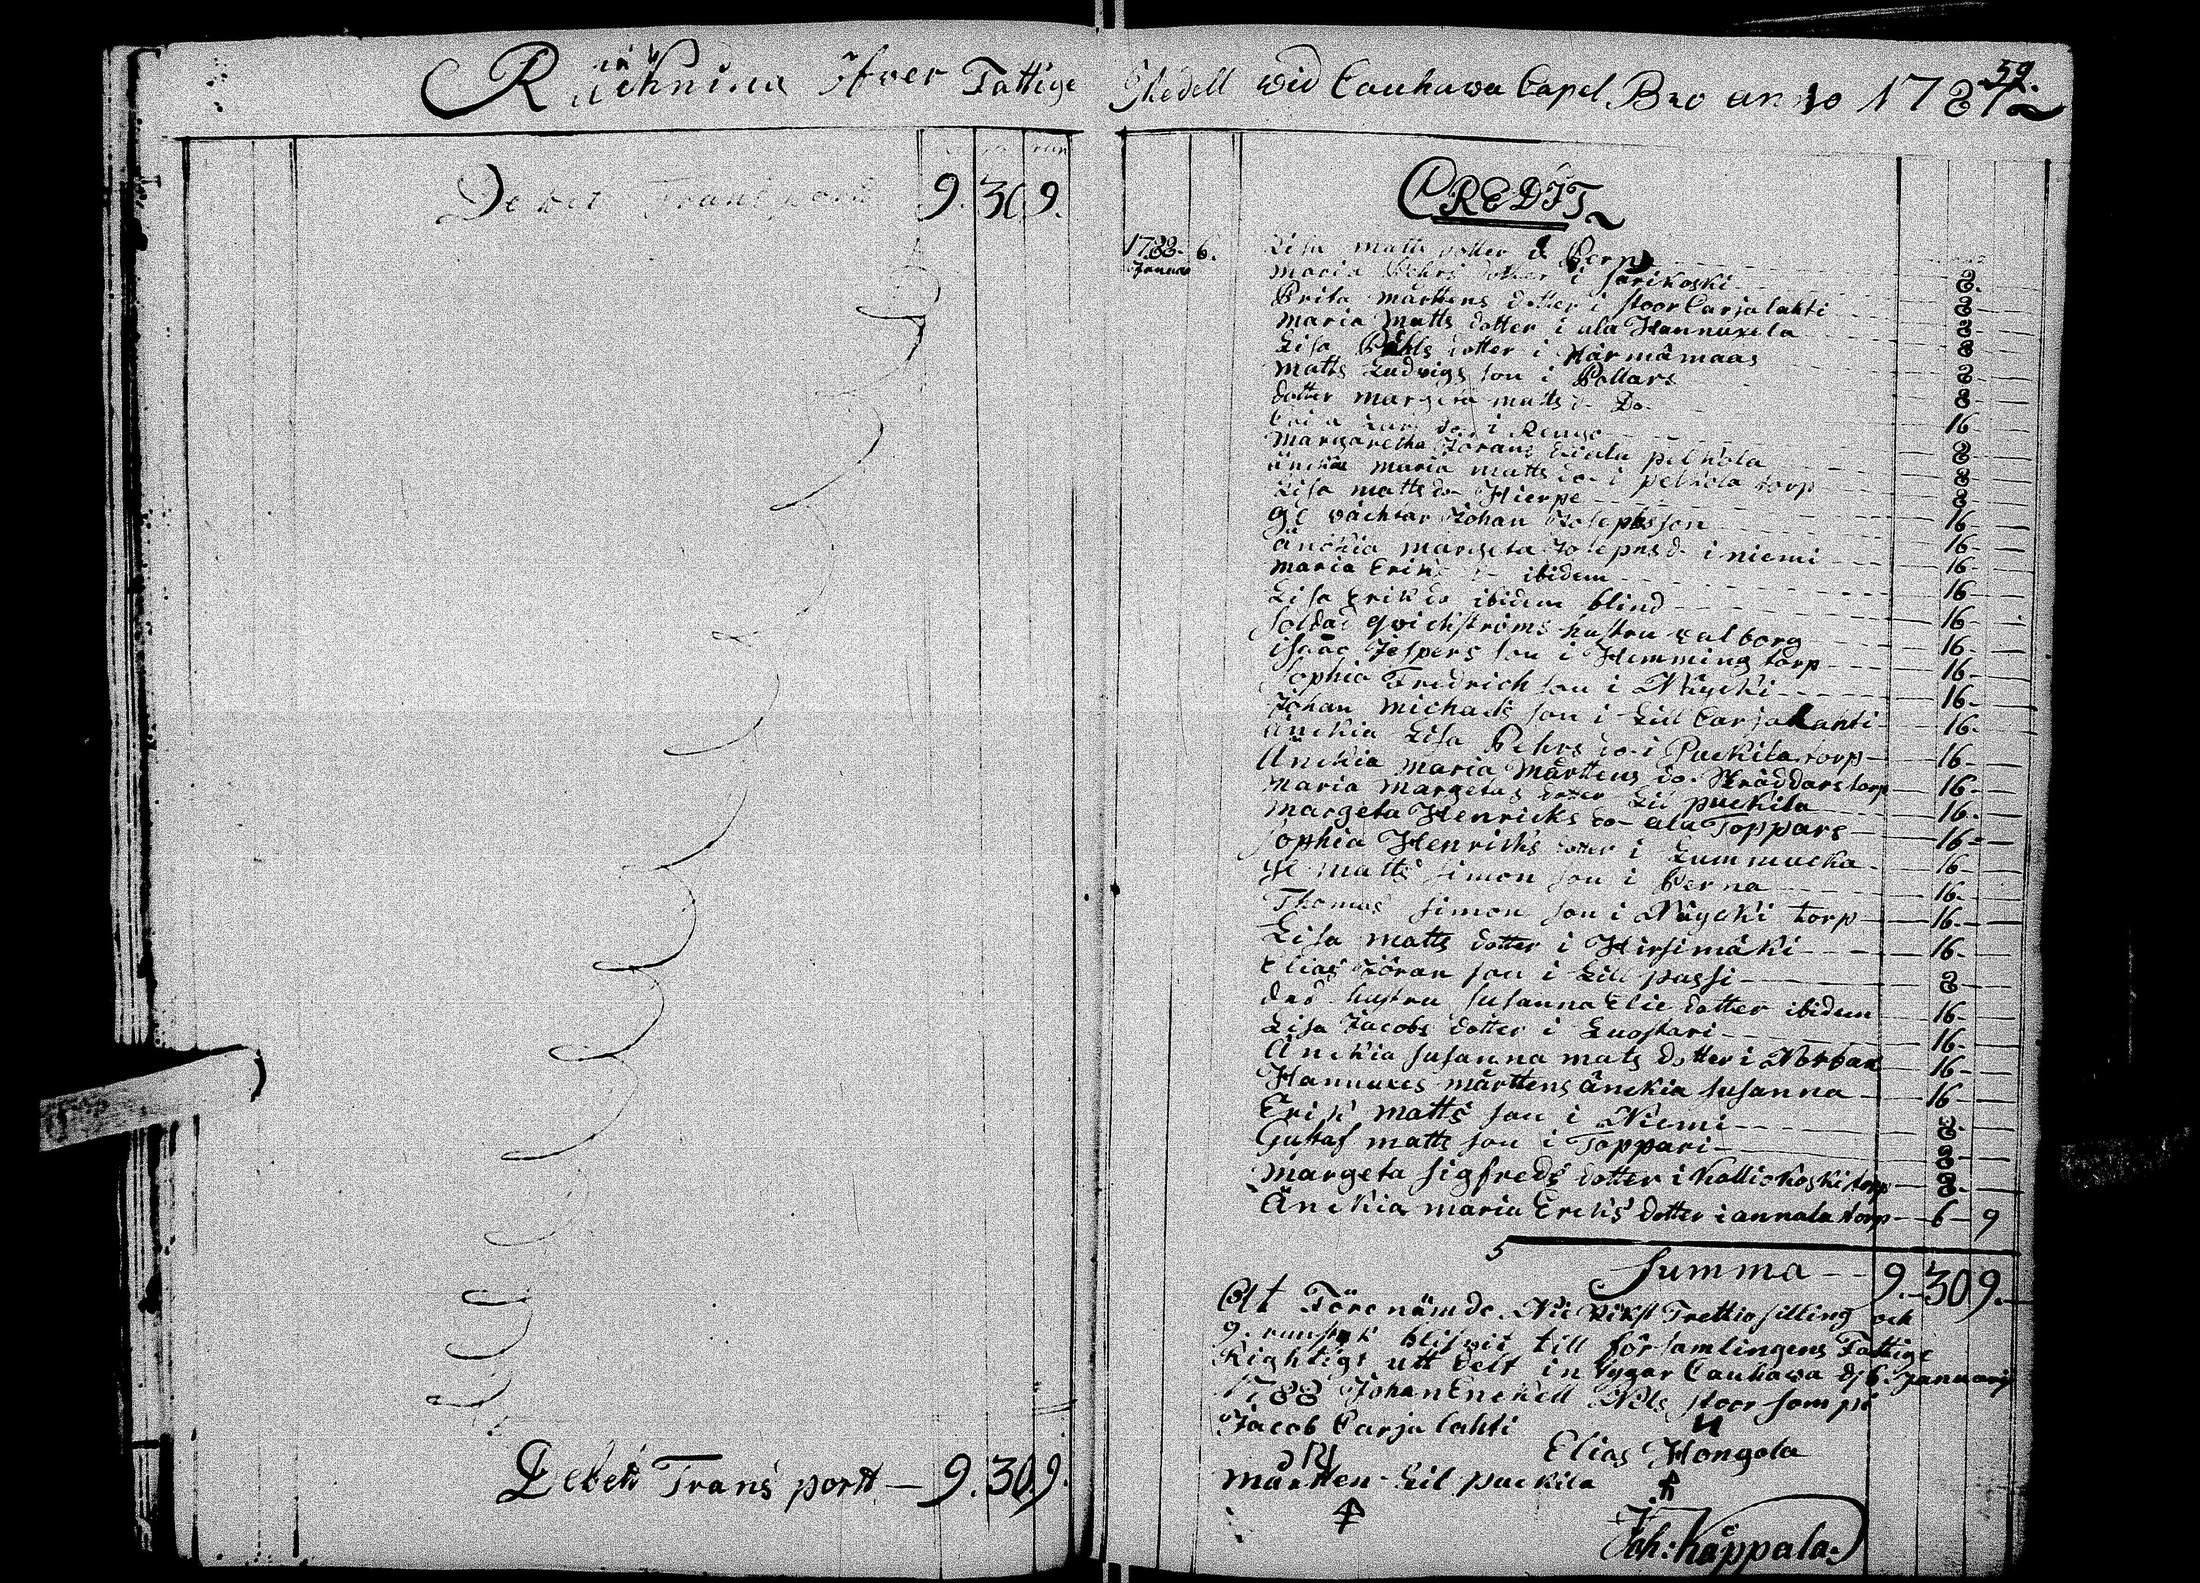 Räckning Öfver Fattige Medell wid Cauhawa Capel Bro anno 1787
59.
Debet Transport 9. 30 9.
Debett Transportt — 9. 30. 9.
CREDIT
1788. Januari 6. Lisa matts dotter i Perna
maria Pehrs dotter i Jarikoski 8.
Brita mårtens dotter i stoor Carjalahti 8
maria matts dotter i ala Hannuxela 8
Lisa Påhls dotter i Härmämaas 8
matts Ludvigs son i Pollars 8
dotter margeta matts d Do 8
i Rengo 16
Margaretha Jörans Pelkola 8
änckia maria matts do i pelkola torp 8
Lisa matts do Hierpe 8
gl wächtar Johan Josephsson 16
änckia margeta Josephs d. i niemi 16
maria Eriks ibidem 16
Lisa Erik do ibidem blind 16
soldad qvickströms hustru valborg 16
isaac Jespers son i Hemming torp 16
Sophia Fredrich son i Näycki 16
Johan michaels son i Lill Carjalahti 16.
änckia Lisa Pehrs do i Puckila torp 16
Änckia maria Mårttens do. Skräddars torp 16
maria margetas dotter Lil puckila 16
margeta Henricks do ala Toppars 16.
Sophia Henrichs dotter i Lummucka 16
gl matts simon son i Perna 16
Thomas simon son i Näycki torp 16
Lisa matts dotter i Hirsimäki 16
Elias Jöran son i Lill passi 8
des hustru susanna Elie dotter ibidem 16
Lisa Jacobs dotter i Luostari 16
Änckia susanna mats dotter i Norbak 16
Hannuxes mårttens änckia susanna 16
Erik matts son i Niemi 8
Gustaf matts son i Toppari 8
margeta sigfreds dotter i Kalliokoski torp 8.
Änckia maria Ericks dotter i annala torp 6 9
Summa 9. 30 9.
At Förenämde Nie Rikst Trettio silling och
9. runstyk blifwit till församlingens Fattige
Richtigt utt delt in tygar Cauhawa d 6. Januarij
1788 Johan Enckell Nils stoor sompi
Jacob Carja lahti
Elias Hongola
mårtten Lil puckila
Joh: Kåppala